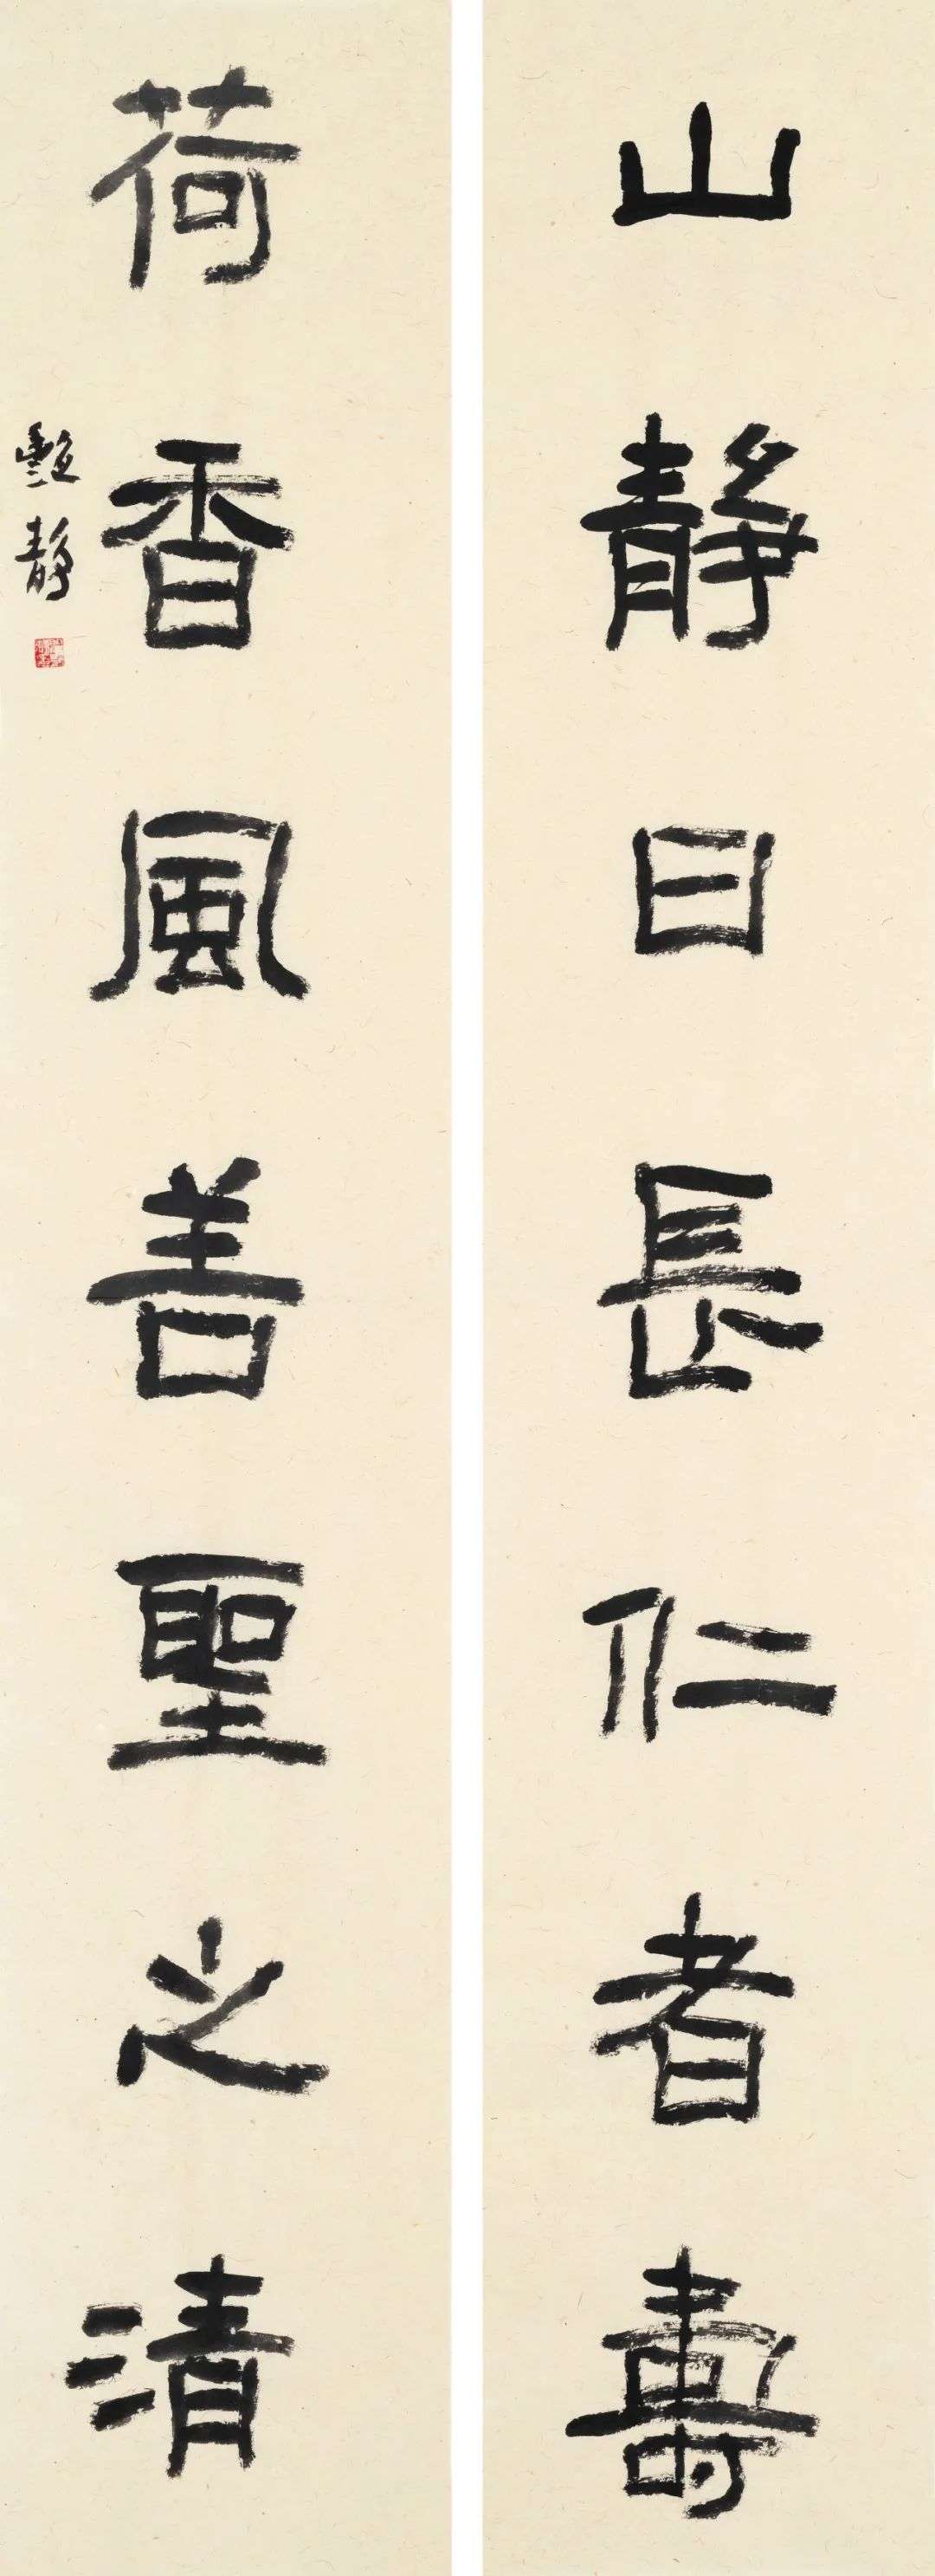 山靜日長仁者壽
荷香風善聖之清
艷靜